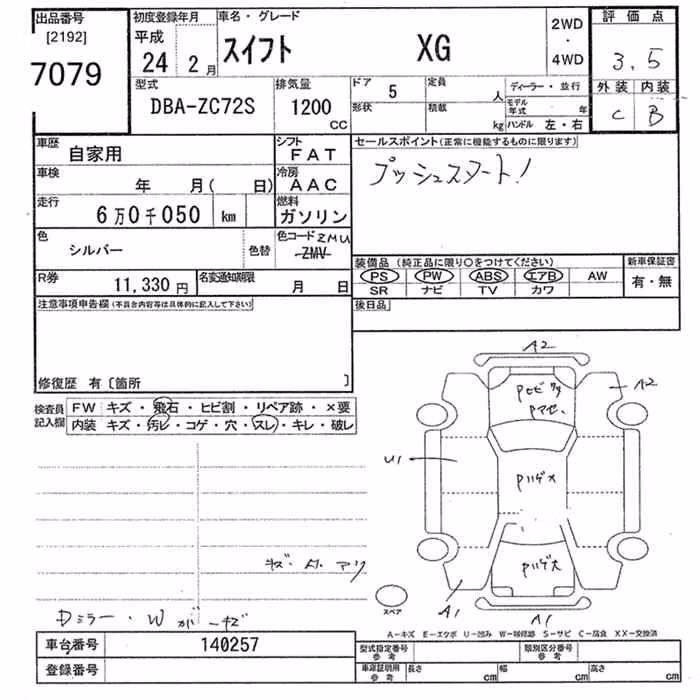 出品番号 初度登録年月 車名・グレード 2WD・4WD 評価点
[2192] 平成
7079 24 2月 スイフト XG 3.5
型式 排気量 ドア 5 定員 人 ディーラー・並行 外装 内装
DBA-ZC72S 1200 CC 形状 積載 kg モデル年式 年 C B
ハンドル 左・右
車歴 自家用 シフト FAT セールスポイント(正常に機能するものに限ります)
車検 年 月( 日) 冷房 AAC プッシュスタート!
走行 6万0千050 km 燃料 ガソリン
色 シルバー 色替 色コード ZMU ZMV
装備品(純正品に限り○をつけてください) 新車保証書
R券 11,330円 名変通知期限 月 日 PS PW ABS エアB AW 有・無
SR ナビ TV カワ
注意事項申告欄(不具合内容等は具体的に記入して下さい) 後日品
修復歴 有〔箇所 〕
検査員記入欄 FW キズ・飛石・ヒビ割・リペア跡・×要
内装 キズ・汚レ・コゲ・穴・スレ・キレ・破レ
A2
A2
U1
Pハゲ大
A1
A1
スペア
Dミラー・W
A-キズ E-エクボ U-凹み W-補修跡 S-サビ C-腐食 XX-交換済
車台番号 140257 型式指定番号 参考 類別区分番号 参考
登録番号 車庫証明用 参考 長さ cm 幅 cm 高さ cm